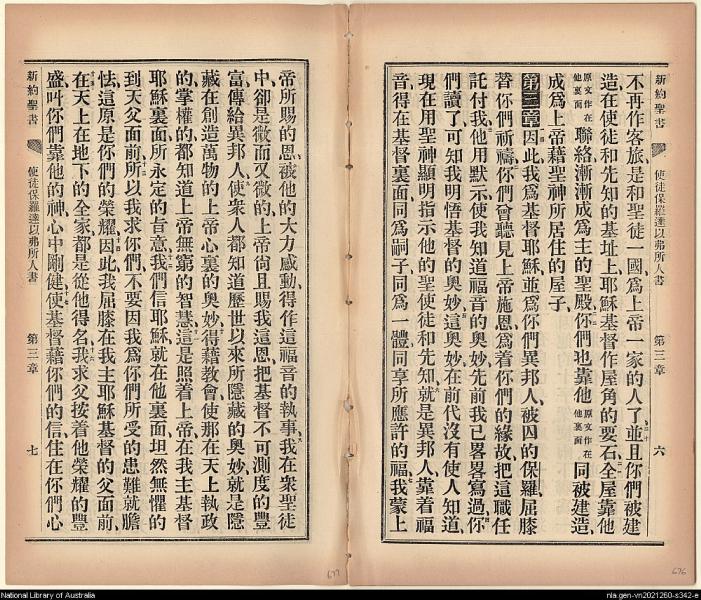 新約聖書 使徒保羅達以弗所人書 第三章 六
不再作客旅、是和聖徒一國、爲上帝一家的人了、並且你們被建
造在使徒和先知的基址上、耶穌基督作屋角的要石、全屋靠他
原文作在他裏面聯絡漸漸成爲主的聖殿、你們也靠他原文作在他裏面同被建造、
成爲上帝藉聖神所居住的屋子、
第三章因此我爲基督耶穌、並爲你們異邦人、被囚的保羅屈膝
替你們祈禱、你們曾聽見上帝施恩、爲着你們的緣故把這職任
託付我、他用默示使我知道福音的奧妙、先前我已畧畧寫過、你
們讀了可知我明悟基督的奧妙、這奧妙在前代沒有使人知道、
現在用聖神顯明指示他的聖使徒和先知、就是異邦人靠着福
音得在基督裏面同爲嗣子、同爲一體、同享所應許的福、我蒙上
新約聖書 使徒保羅達以弗所人書 第三章 七
帝所賜的恩、被他的大力感動、得作這福音的執事、我在衆聖徒
中卻是微而又微的、上帝尙且賜我這恩、把基督不可測度的豐
富、傳給異邦人、使衆人都知道歷世以來所隱藏的奧妙、就是隱
藏在創造萬物的上帝心裏的奧妙、得藉教會、使那在天上執政
的掌權的都知道上帝無窮的智慧、這是照着上帝在我主基督
耶穌裏面所永定的旨意、我們信耶穌、就在他裏面坦然無懼的
到天父面前、所以我求你們、不要因我爲你們所受的患難就膽
怯、這原是你們的榮耀、因此我屈膝在我主耶穌基督的父面前、
在天上在地下的全家、都是從他得名、我求父按着他榮耀的豐
盛、叫你們靠他的神、心中剛健、使基督藉你們的信、住在你們心
677
676
National Library of Australia
nla.gen-vn2021260-s342-e